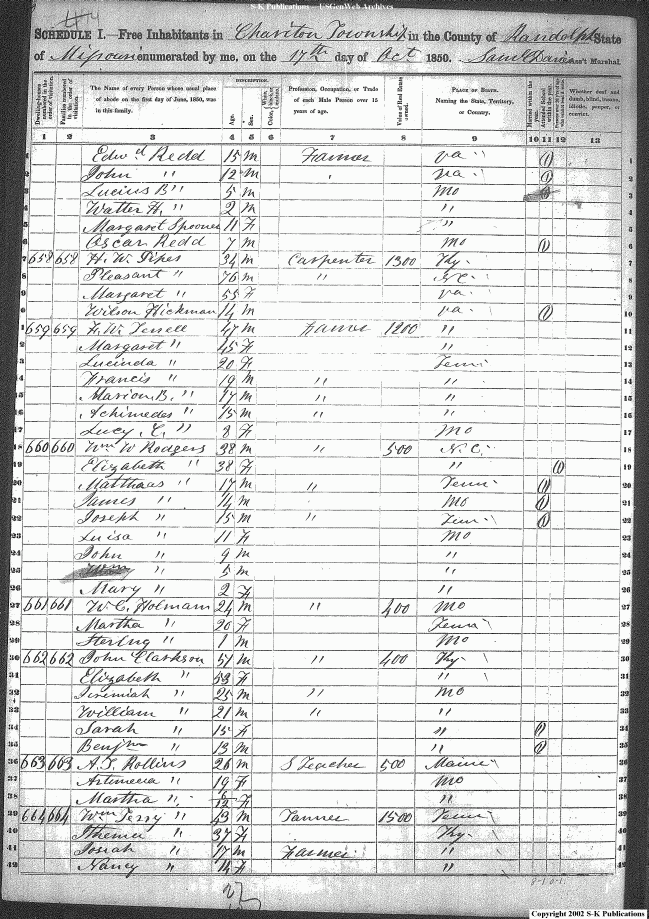 S-K Publications -- USGenWeb Archives
SCHEDULE I.—Free Inhabitants in Chariton Township in the County of Randolph State
of Missouri enumerated by me, on the 17th day of Oct 1850. Saml Davis Ass't Marshal.
Dwelling-houses numbered in the order of visitation.
Families numbered in the order of visitation.
The Name of every Person whose usual place of abode on the first day of June, 1850, was in this family.
DESCRIPTION.
Age.
Sex.
Profession, Occupation, or Trade of each Male Person over 15 years of age.
Value of Real Estate owned.
PLACE OF BIRTH. Naming the State, Territory, or Country.
Married within the year.
Attended School within the year.
Whether deaf and dumb, blind, insane, idiotic, pauper, or convict.
1 2 3 4 5 6 7 8 9 10 11 12 13
1 Edwd Redd 15 M Farmer va " 1 1
2 John " 12 M " va " 1 2
3 Lucius B " 5 M Mo 3
4 Walter H. " 2 M " 4
5 Margaret Spooner 11 F " 5
6 Oscar Redd 7 M Mo 1 6
7 658 658 H. W. Pipes 34 M Carpenter 1300 Ky. 7
8 Pleasant " 76 M " N.C. 8
9 Margaret " 55 F va. 9
10 Wilson Hickman 14 M va. 1 10
11 659 659 H. W. Terrell 47 M Farmer 1200 " 11
12 Margaret " 45 F " 12
13 Lucinda " 20 F Tenn 13
14 Francis " 19 M " " 14
15 Marion B. " 17 M " " 15
16 Achimedes " 15 M " " 16
17 Lucy C. " 8 F Mo 17
18 660 660 Wm W Rodgers 38 M " 500 N.C. 18
19 Elizabeth " 38 F " 1 19
20 Matthaas " 17 M " Tenn 1 20
21 James " 14 M Mo 1 21
22 Joseph " 15 M " Tenn 1 22
23 Luisa " 11 F Mo 23
24 John " 9 M " 24
25 Wm " 5 M " 25
26 Mary " 2 F " 26
27 661 661 W. C. Holmann 24 M " 400 Mo 27
28 Martha " 20 F Tenn 28
29 Sterling " 1 M Mo 29
30 662 662 John Clarkson 51 M " 400 Ky. 30
31 Elizabeth " 53 F " 31
32 Jeremiah " 25 M " Mo 32
33 William " 21 M " " 33
34 Sarah " 15 F " 1 34
35 Benjm " 13 M " 1 35
36 663 663 A. S. Rollins 26 M S Teacher 500 Maine 36
37 Artimecia " 19 F Mo 37
38 Martha " 6/12 F " 38
39 664 664 Wm Terry " 43 M Tanner 1500 Tenn 39
40 " 37 F Ky. 40
41 Josiah " 17 M Farmer " 41
42 Nancy " 14 F " 42
Copyright 2002 S-K Publications